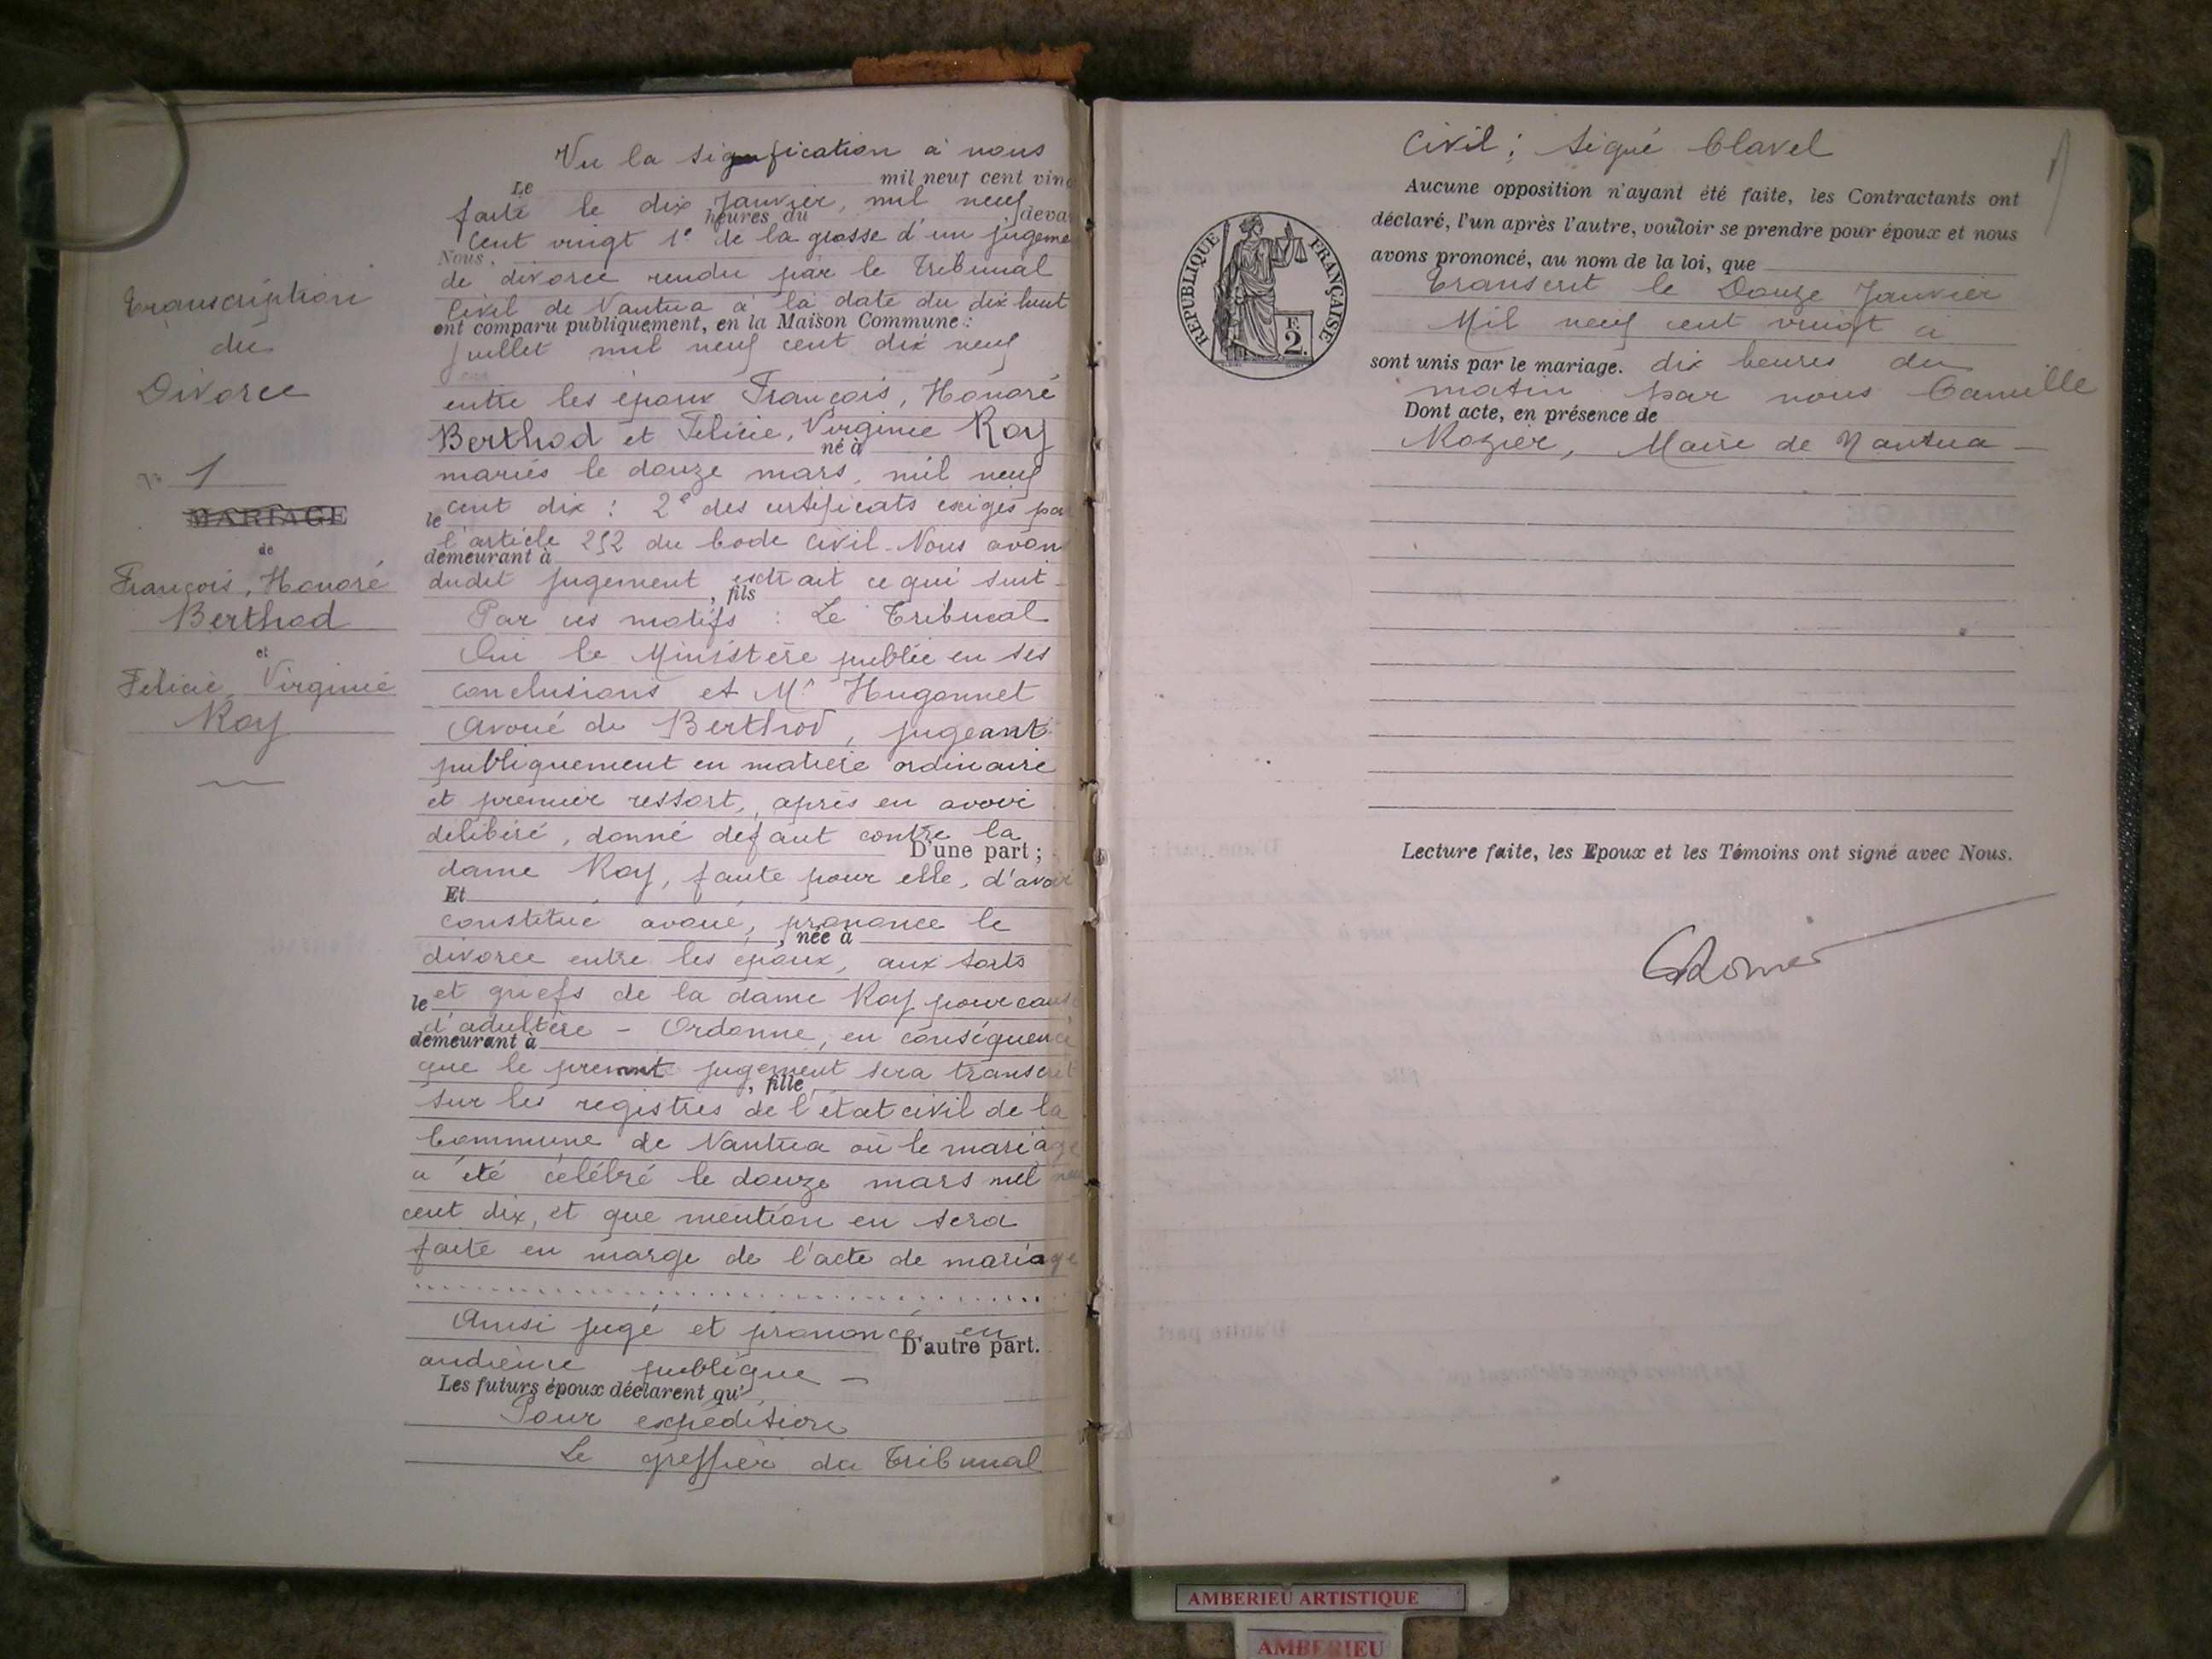 Transcription
du
Divorce
N° 1
MARIAGE
de
François, Honoré
Berthod
et
Felicie, Virginie
Roy
Vu la signification à nous
Le mil neuf cent vin
faite le dix Janvier, mil neuf
heures du , deva
Cent vingt 1° de la grosse d'un jugeme
Nous,
de divorce rendu par le Tribunal
Civil de Nantua à la date du dix huit
ont comparu publiquement, en la Maison Commune :
Juillet mil neuf cent dix neuf
entre les époux François, Honoré
Berthod et Felicie, Virginie Roy
né à
mariés le douze mars, mil neuf
cent dix : 2° des certificats exigés pa
le
l'article 252 du Code Civil. Nous avons
demeurant à
dudit jugement, extrait ce qui suit -
, fils
Par ces motifs : Le Tribunal
Oui le Ministère public en ses
conclusions et Me Hugonnet
Avoué de Berthod, jugeant
publiquement en matière ordinaire
et premier ressort, après en avoir
délibéré, donné défaut contre la
D'une part ;
dame Roy, faute pour elle, d'avoir
Et
constitué avoué, prononce le
, née à
divorce entre les époux, aux torts
et griefs de la dame Roy pour cause
le
d'adultère - Ordonne, en conséquence
demeurant à
que le present jugement sera transcrit
, fille
sur les registres de l'état civil de la
Commune de Nantua où le mariage
a été célébré le douze mars mil neuf
cent dix, et que mention en sera
faite en marge de l'acte de mariage
Ainsi jugé et prononcé en
D'autre part.
audience publique -
Les futurs époux déclarent qu'
Pour expédition
Le greffier du Tribunal
Civil ; Signé Clavel
Aucune opposition n'ayant été faite, les Contractants ont
déclaré, l'un après l'autre, vouloir se prendre pour époux et nous
avons prononcé, au nom de la loi, que
RÉPUBLIQUE FRANÇAISE
F.
2.
Transcrit le Douze Janvier
Mil neuf cent vingt à
sont unis par le mariage. dix heures du
matin par nous Camille
Dont acte, en présence de
Rozier, Maire de Nantua -
Lecture faite, les Epoux et les Témoins ont signé avec Nous.
AMBERIEU ARTISTIQUE
AMBERIEU